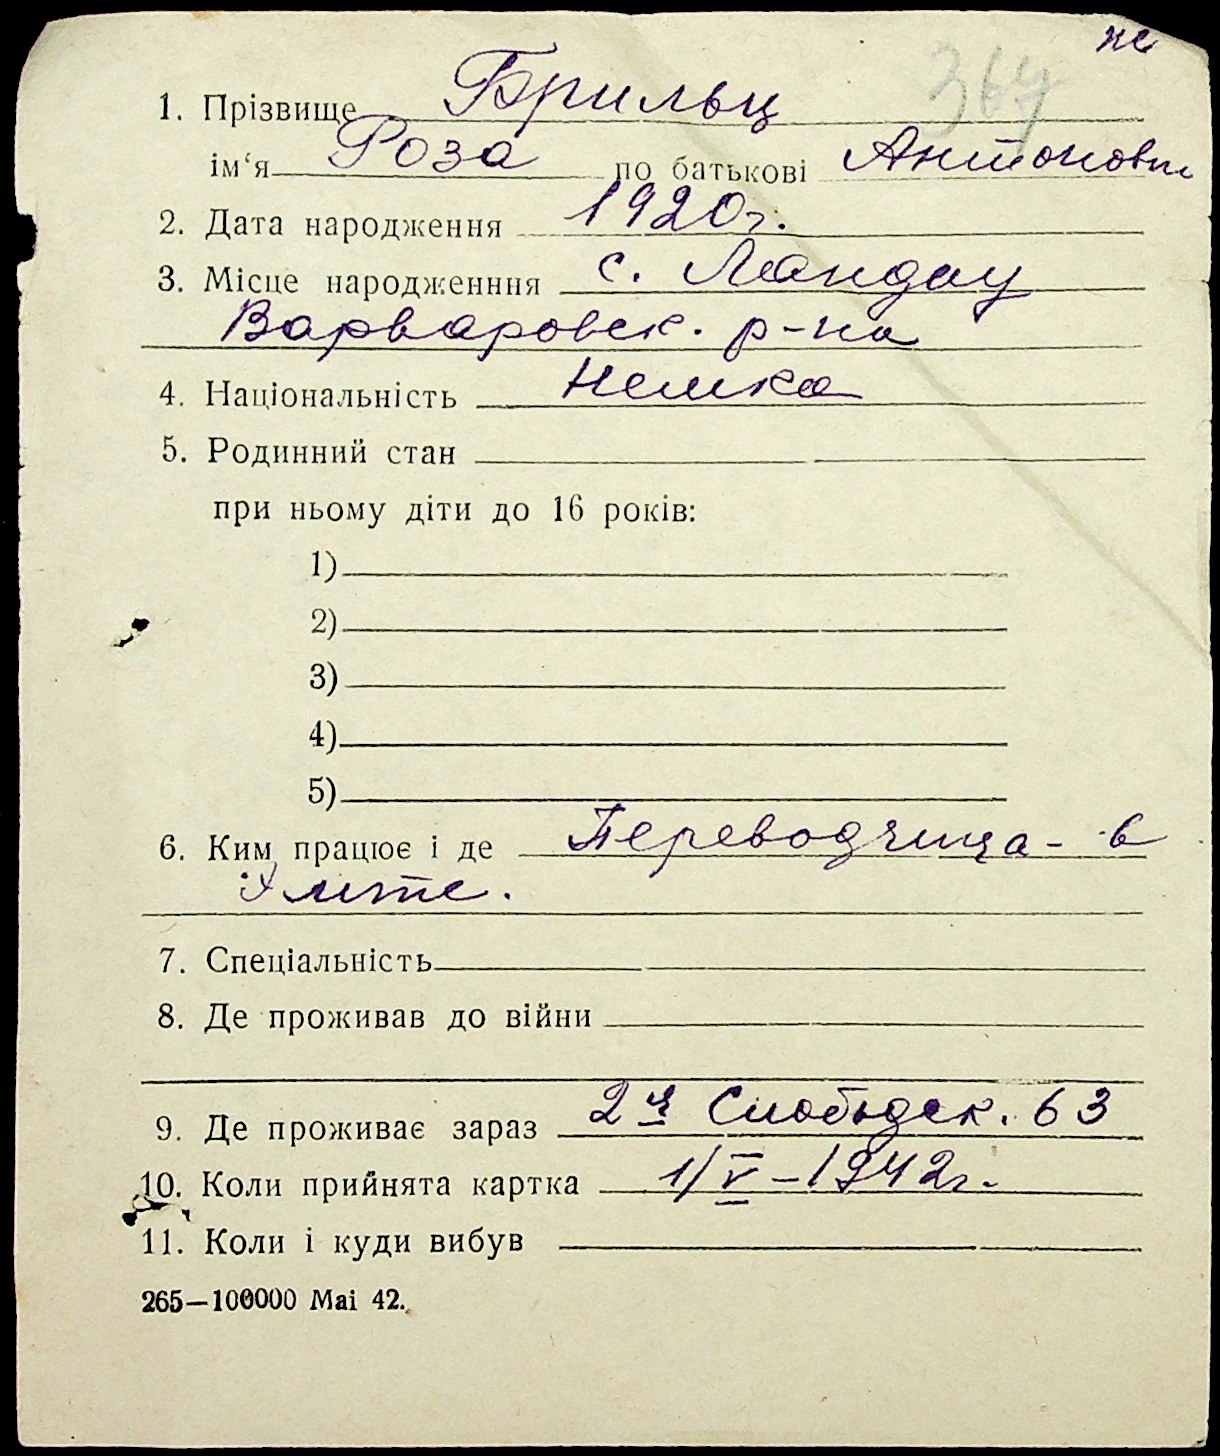 не
367
1. Прізвище Брильц
ім‘я Роза по батькові Антоновн
2. Дата народження 1920г.
3. Місце народженння с. Ландау
Варваровск. р-на
4. Національність Немка
5. Родинний стан
при ньому діти до 16 років:
1)
2)
3)
4)
5)
6. Ким працює і де Переводчица - в
7. Спеціальність
8. Де проживав до війни
9. Де проживає зараз 2 я Слободск. 63
10. Коли прийнята картка 1/V – 1942г.
11. Коли і куди вибув
265—100000 Mai 42.